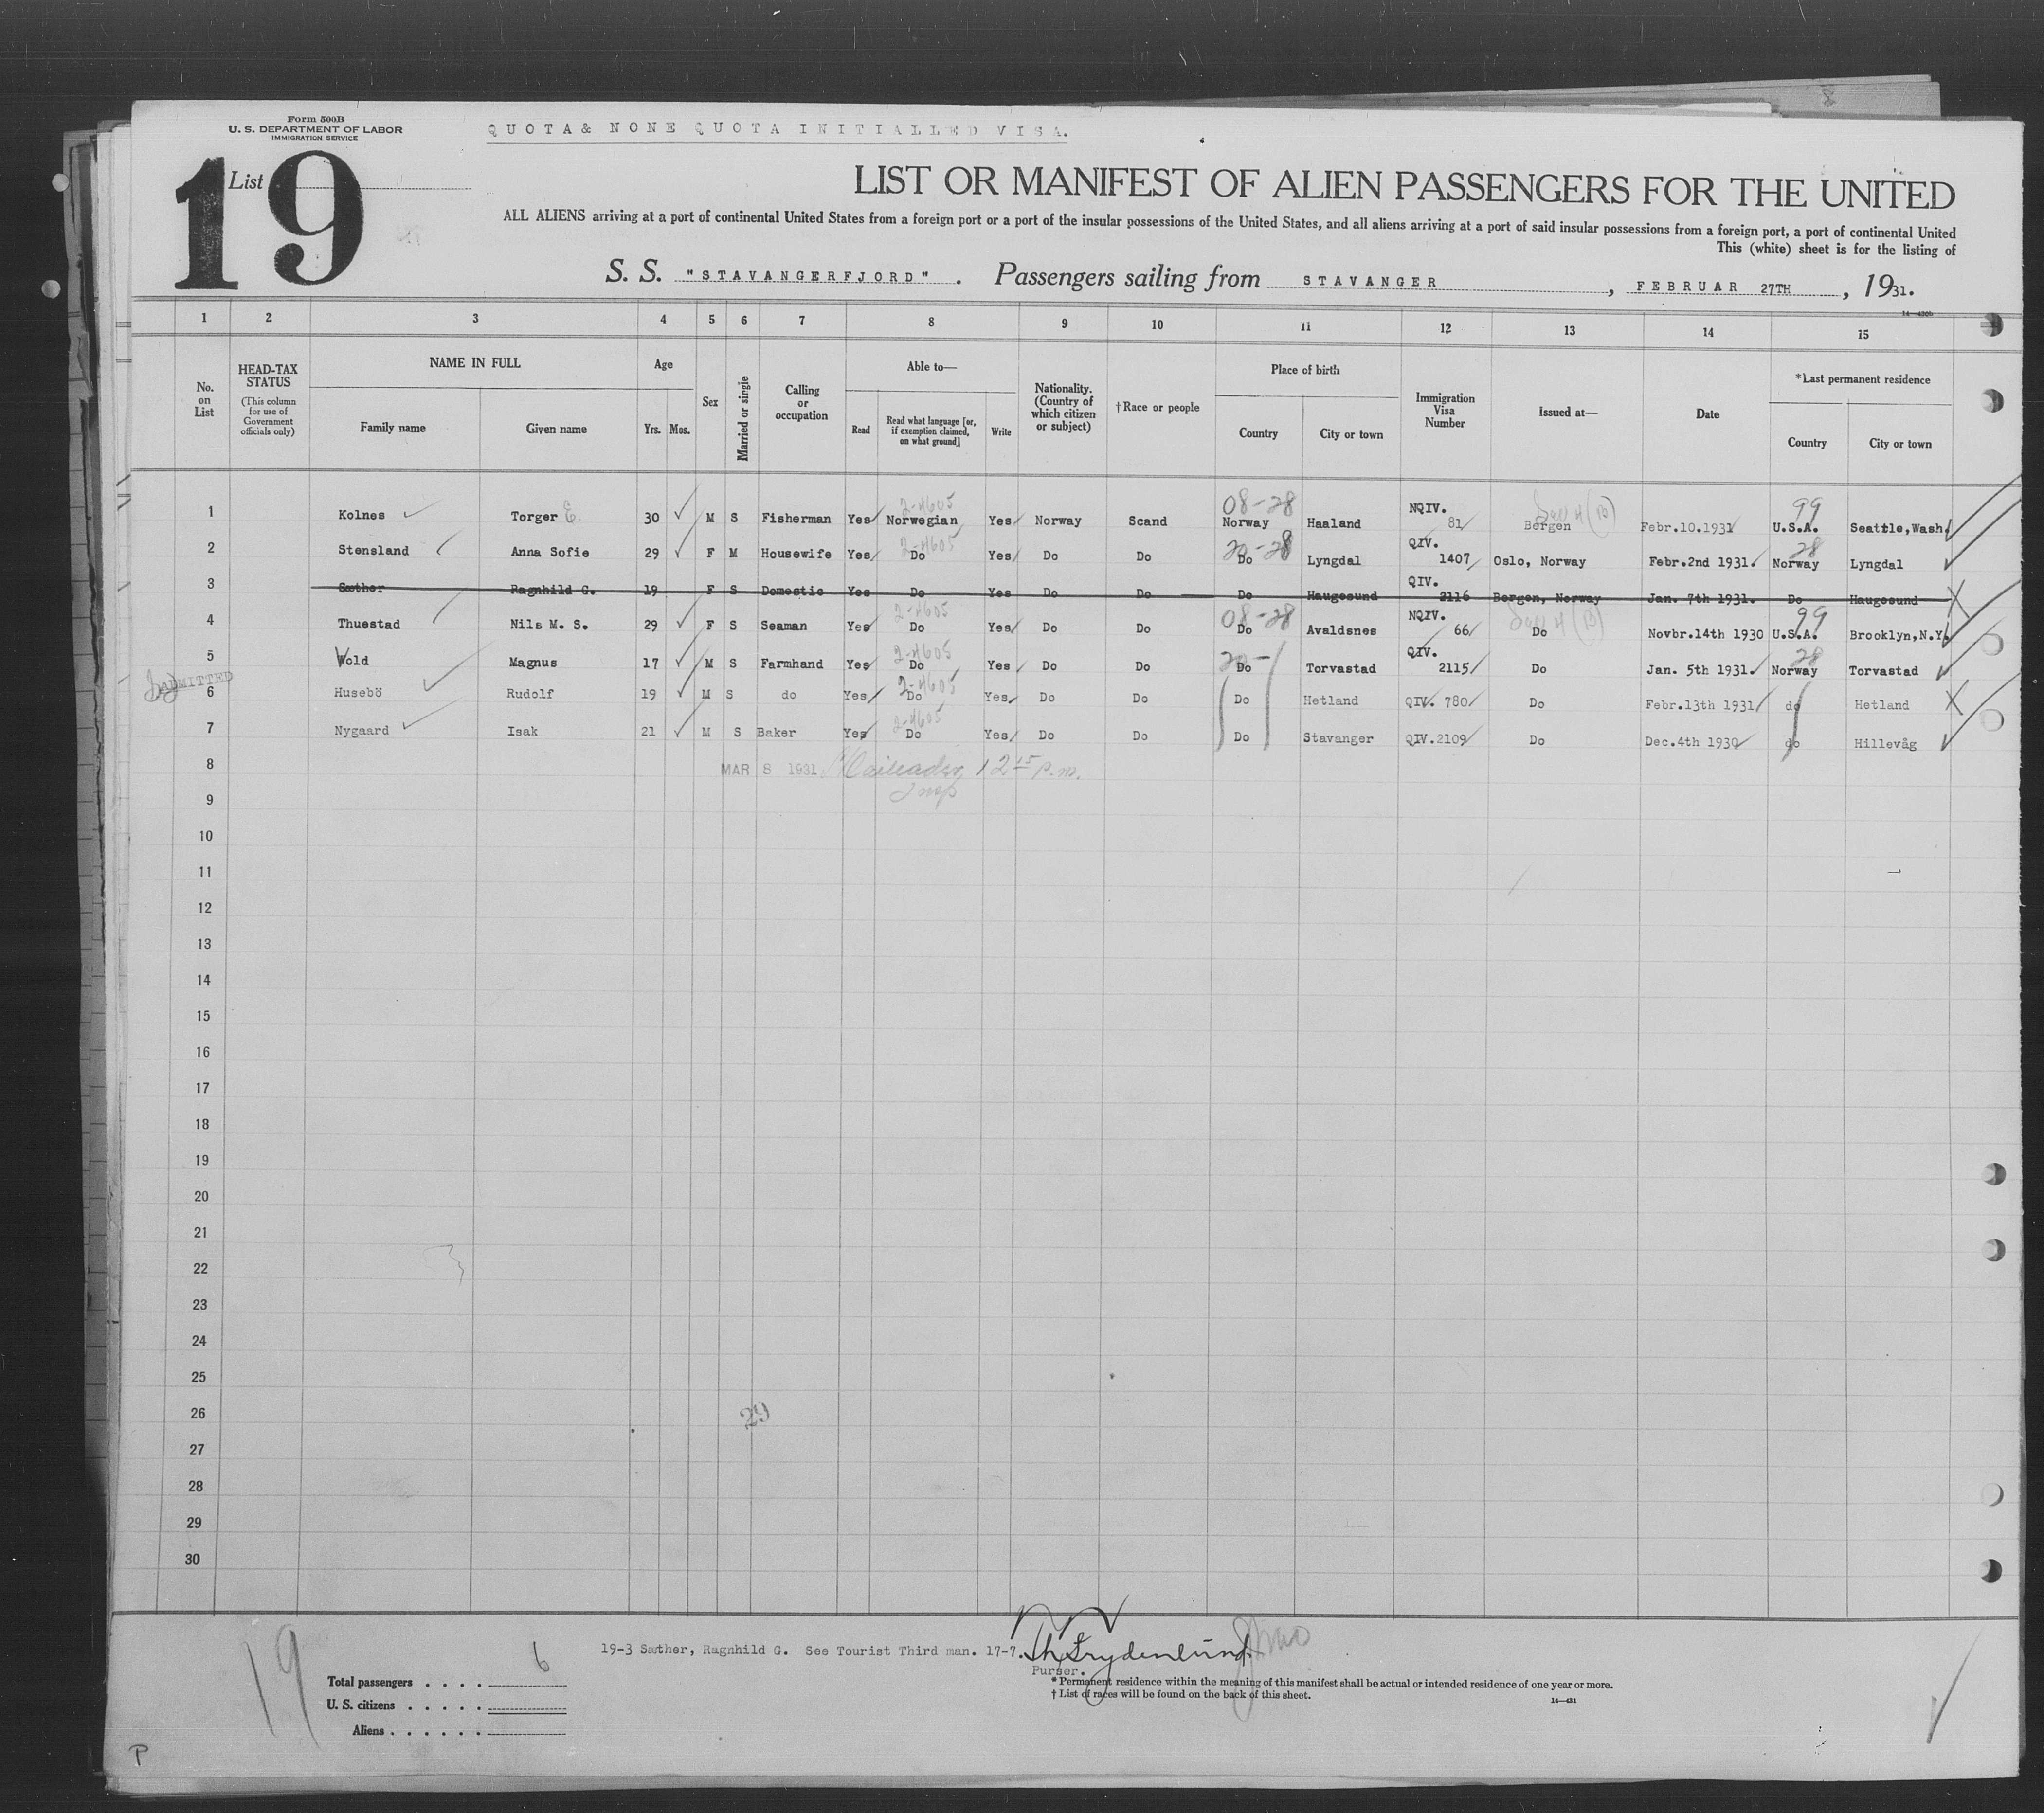 Form 500B
U. S. DEPARTMENT OF LABOR
IMMIGRATION SERVICE
QUOTA & NONE QUOTA INITIALLED VISA.
List
19
LIST OR MANIFEST OF ALIEN PASSENGERS FOR THE UNITED
ALL ALIENS arriving at a port of continental United States from a foreign port or a port of the insular possessions of the United States, and all aliens arriving at a port of said insular possessions from a foreign port, a port of continental United
This (white) sheet is for the listing of
S. S. "STAVANGERFJORD". Passengers sailing from STAVANGER, FEBRUAR 27TH, 1931.
14—430b
1 2 3 4 5 6 7 8 9 10 11 12 13 14 15
No. on List
HEAD-TAX STATUS
(This column for use of Government officials only)
NAME IN FULL
Family name Given name
Age
Yrs. Mos.
Sex
Married or single
Calling or occupation
Able to—
Read
Read what language [or, if exemption claimed, on what ground]
Write
Nationality. (Country of which citizen or subject)
†Race or people
Place of birth
Country City or town
Immigration Visa Number
Issued at—
Date
*Last permanent residence
Country City or town
2-4605 08-28 99
1 Kolnes Torger E 30 M S Fisherman Yes Norwegian Yes Norway Scand Norway Haaland NQIV. 81 Bergen Febr.10.1931 U.S.A. Seattle,Wash.
2-4605 20-28 28
2 Stensland Anna Sofie 29 F M Housewife Yes Do Yes Do Do Do Lyngdal QIV. 1407 Oslo, Norway Febr.2nd 1931. Norway Lyngdal
3 Sæther Ragnhild G. 19 F S Domestic Yes Do Yes Do Do Do Haugesund QIV. 2116 Bergen, Norway Jan. 7th 1931. Do Haugesund X
2-4605 08-28 99
4 Thuestad Nils M. S. 29 F S Seaman Yes Do Yes Do Do Do Avaldsnes NQIV. 66 Do Novbr.14th 1930 U.S.A. Brooklyn,N.Y.
2-4605 20- 28
5 Wold Magnus 17 M S Farmhand Yes Do Yes Do Do Do Torvastad QIV. 2115 Do Jan. 5th 1931. Norway Torvastad
ADMITTED
2-4605
6 Husebö Rudolf 19 M S do Yes Do Yes Do Do Do Hetland QIV. 780 Do Febr.13th 1931 do Hetland X
2-4605
7 Nygaard Isak 21 M S Baker Yes Do Yes Do Do Do Stavanger QIV.2109 Do Dec.4th 1930 do Hillevåg
8 MAR 8 1931 12 15 p.m.
9 Insp
10
11
12
13
14
15
16
17
18
19
20
21
22
23
24
25
26 29
27
28
29
30
19
19-3 Sæther, Ragnhild G. See Tourist Third man. 17-7.
Purser.
Total passengers . . . . 6
U. S. citizens . . . . .
Aliens . . . . . .
* Permanent residence within the meaning of this manifest shall be actual or intended residence of one year or more.
† List of races will be found on the back of this sheet.
14—431
P